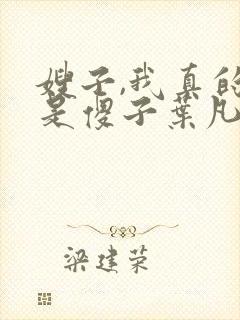 嫂子,我真的
是傻子叶凡
梁建荣